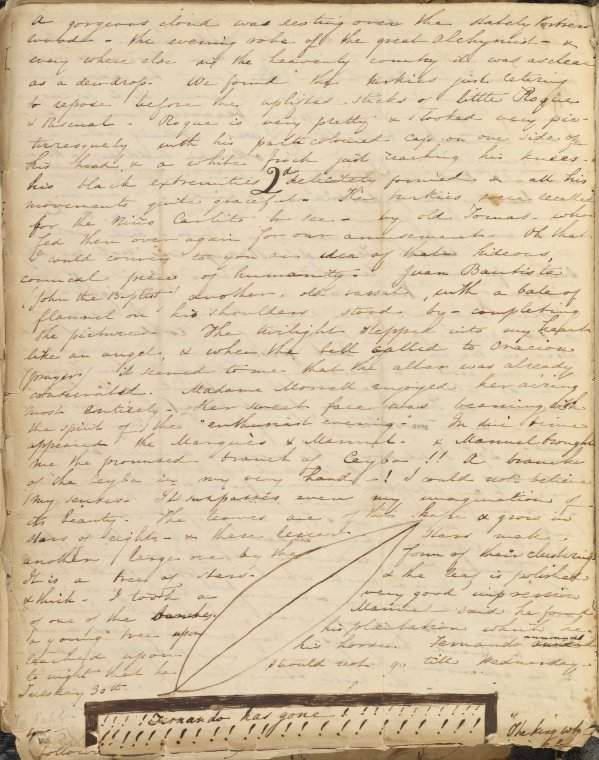 a gorgeous cloud was resting over the stately
wood - the evening robe of the great Alchymist - &
every where else in the heavenly country it was as clear
as a dewdrop. We found the turkies just retiring
to repose before the uplifted sticks of little Roque
& Pascual - Roque is very pretty & looked very pic-
turesquely with his particoloured cap on one side of
his head, & a white frock just reaching his knees -
his black extremities delicately formed & all his
movements quite graceful - The turkies were recalled
for the Niño Carlito to see - by old Tomas - who
fed them over again for our amusement. Oh that
I could convey to you an idea of that hideous,
comical piece of humanity - Juan Bautista
(John the Baptist) another old vassal, with a bale of
flannel on his shoulders stood by - completing
the picture. The twilight stepped into my heart
like an angel, & when the bell called to Oracion
(prayer) it seemed to me that the altar was already
consecrated. Madame Morrell enjoyed her airing
most entirely - Her sweet face was beaming with
the spirit of the "enthusiast evening - In due time
appeared the Marquis & Manuel - & Manuel brought
me the promised branch of Ceyba - !! A branch
of the Ceyba in my very hand - ! I could not believe
my senses. It surpasses even my imagination of
its beauty - The leaves are of this & grow in
stars of eights - & these lesser stars make
another large one by the form of their clustering
It is a tree of stars - & the leaf is polished
& thick - I took a very good impression
of one of the Manuel said he found
a young tree upon his plantation where he
his horse. Fernando announced
to night that he should not go till Wednesday -
Tuesday 30th.
!!! Fernando has gone !!!!!!!
"The king
follow